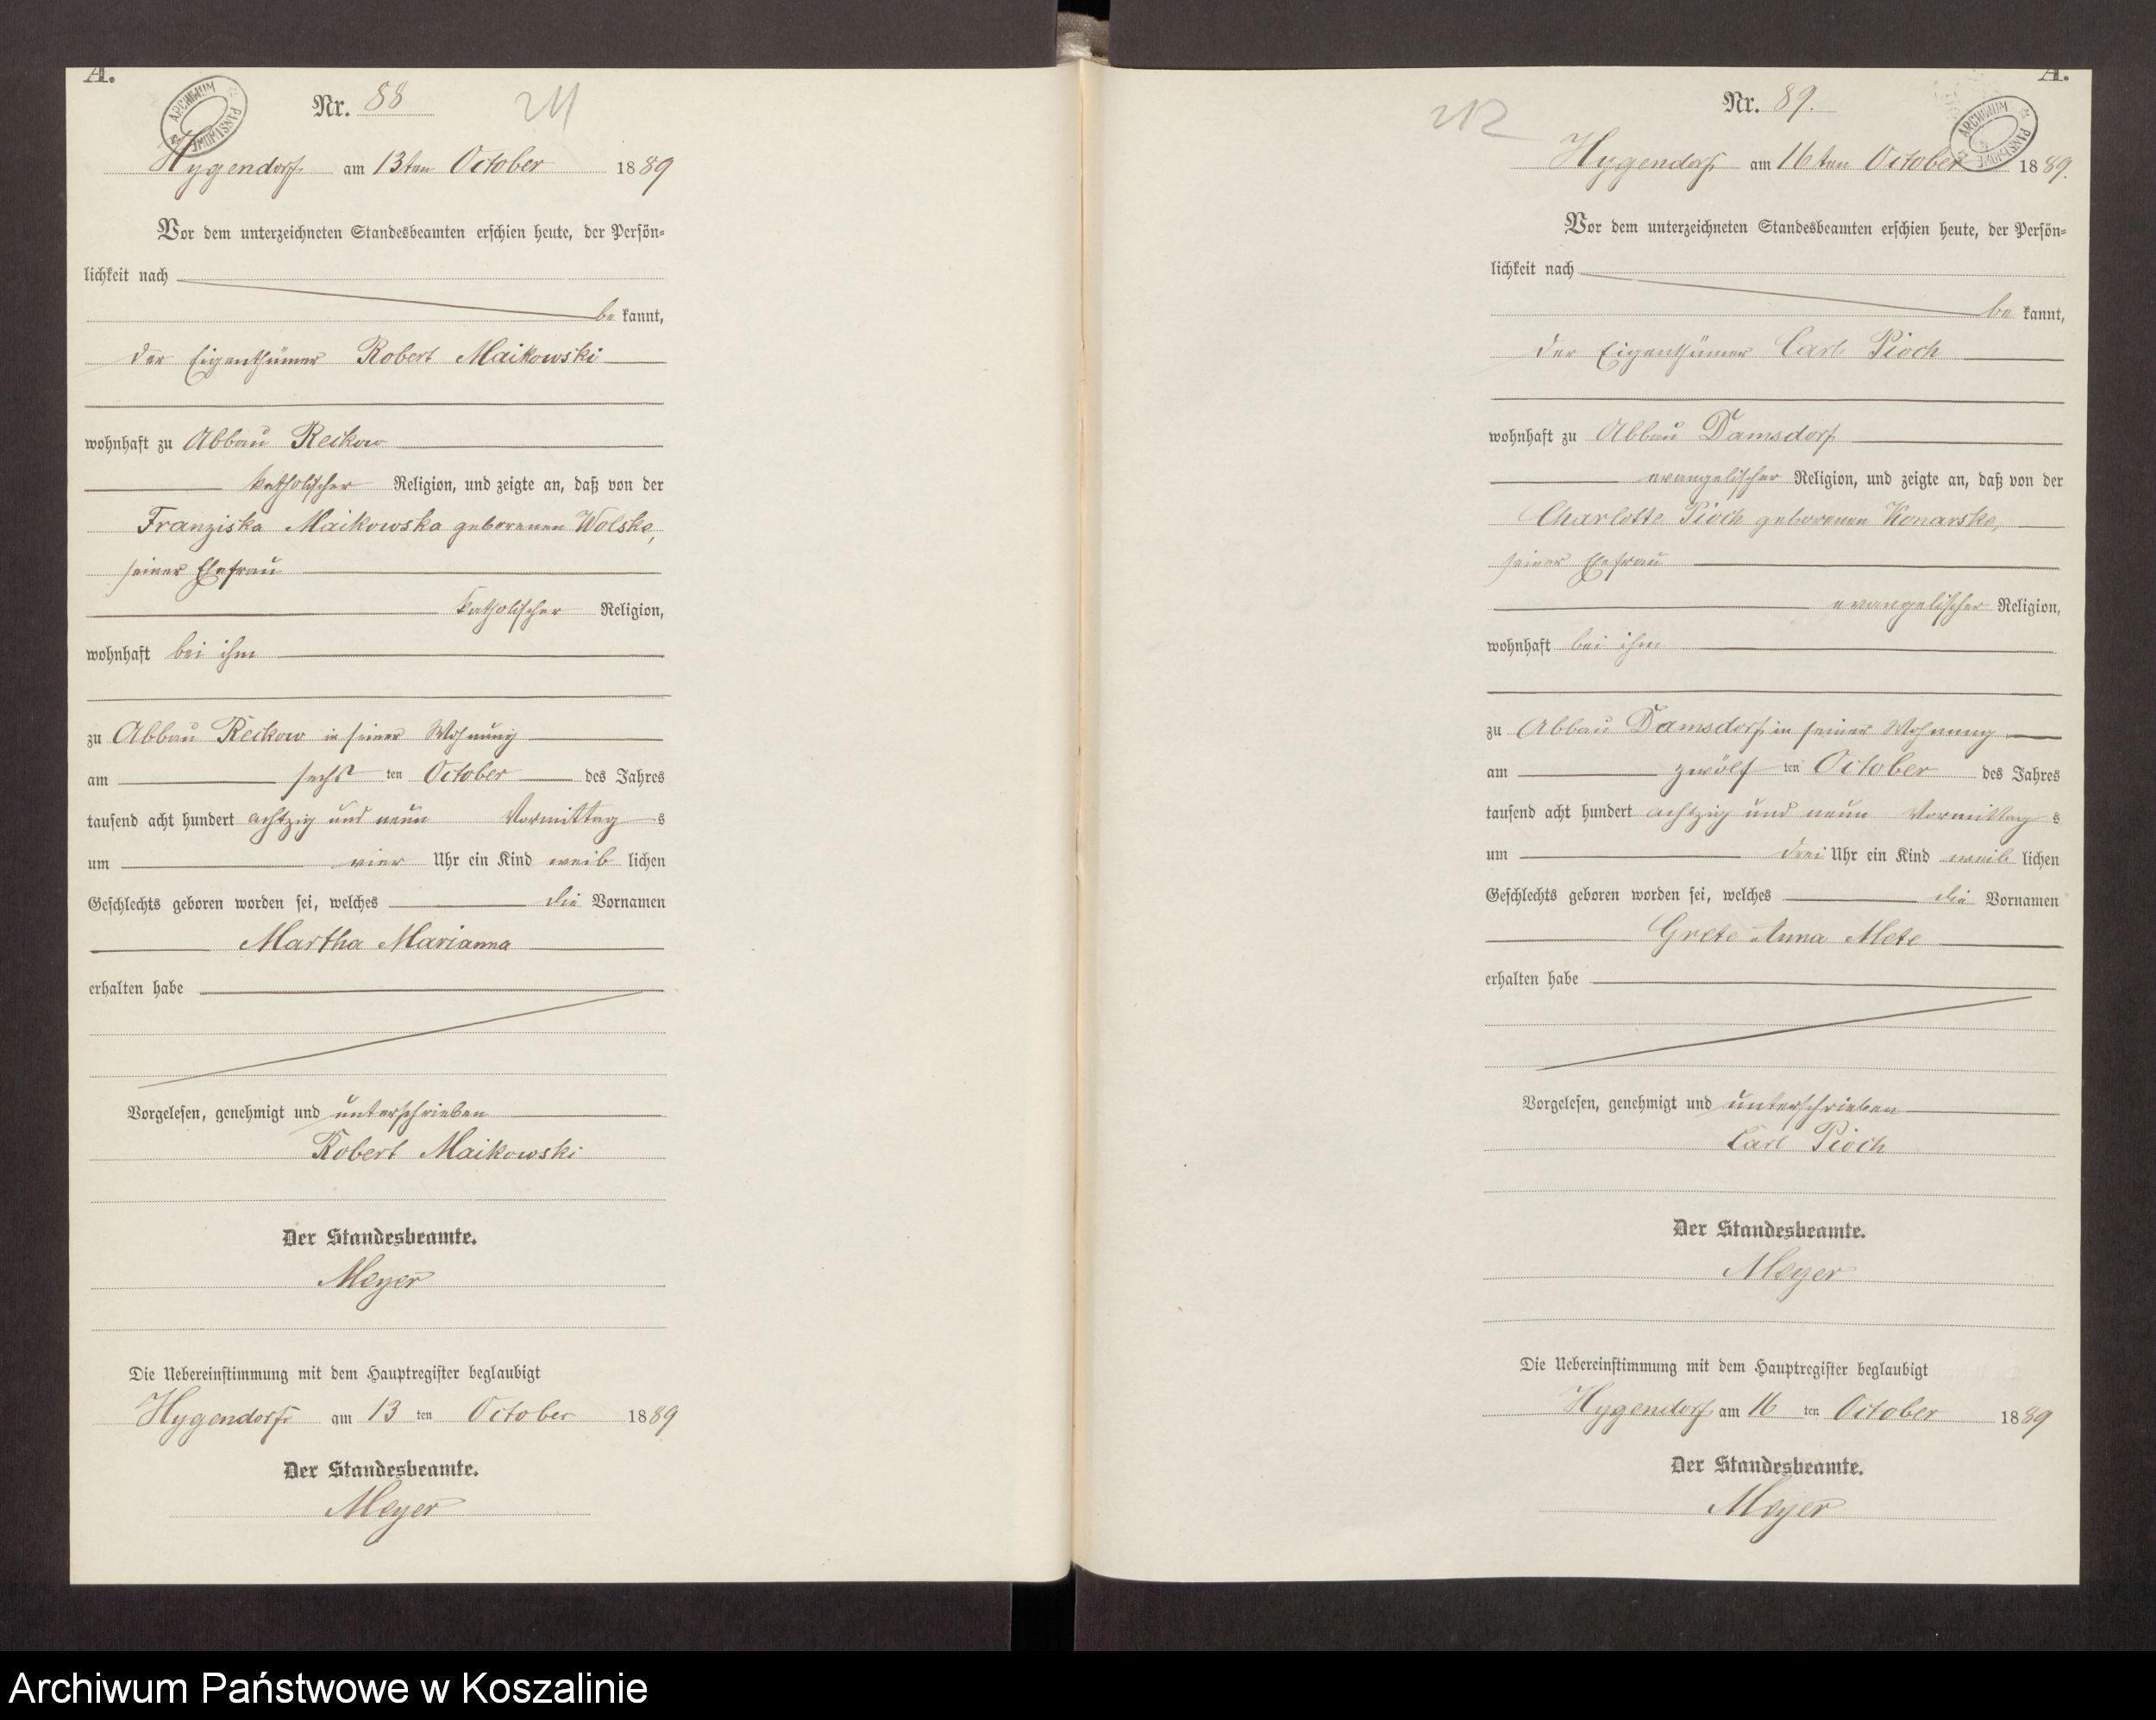 A.
ARCHIWUM PAŃSTWOWE
Nr. 88
211
Hygendorf am 13ten October 1889
Vor dem unterzeichneten Standesbeamten erschien heute, der Persön-
lichkeit nach
bekannt,
der Eigenthümer Robert Maikowski
wohnhaft zu Abbau Reckow
katholischer Religion, und zeigte an, daß von der
Franziska Maikowska geborenen Wolske,
seiner Ehefrau
katholischer Religion,
wohnhaft bei ihm
zu Abbau Reckow in seiner Wohnung
am sechsten October des Jahres
tausend acht hundert achtzig und neun Vormittags
um vier Uhr ein Kind weiblichen
Geschlechts geboren worden sei, welches die Vornamen
Martha Marianna
erhalten habe
Vorgelesen, genehmigt und unterschrieben
Robert Maikowski
Der Standesbeamte.
Meyer
Die Uebereinstimmung mit dem Hauptregister beglaubigt
Hygendorf am 13ten October 1889
Der Standesbeamte.
Meyer
A.
ARCHIWUM PAŃSTWOWE
212
Nr. 89.
Hygendorf am 16ten October 1889.
Vor dem unterzeichneten Standesbeamten erschien heute, der Persön-
lichkeit nach
bekannt,
der Eigenthümer Carl Pioch
wohnhaft zu Abbau Damsdorf
evangelischer Religion, und zeigte an, daß von der
Charlotte Pioch geborenen Konarske,
seiner Ehefrau
evangelischer Religion,
wohnhaft bei ihm
zu Abbau Damsdorf in seiner Wohnung
am zwölften October des Jahres
tausend acht hundert achtzig und neun Vormittags
um drei Uhr ein Kind weiblichen
Geschlechts geboren worden sei, welches die Vornamen
Grete Anna Mete
erhalten habe
Vorgelesen, genehmigt und unterschrieben
Carl Pioch
Der Standesbeamte.
Meyer
Die Uebereinstimmung mit dem Hauptregister beglaubigt
Hygendorf am 16ten October 1889
Der Standesbeamte.
Meyer
Archiwum Państwowe w Koszalinie